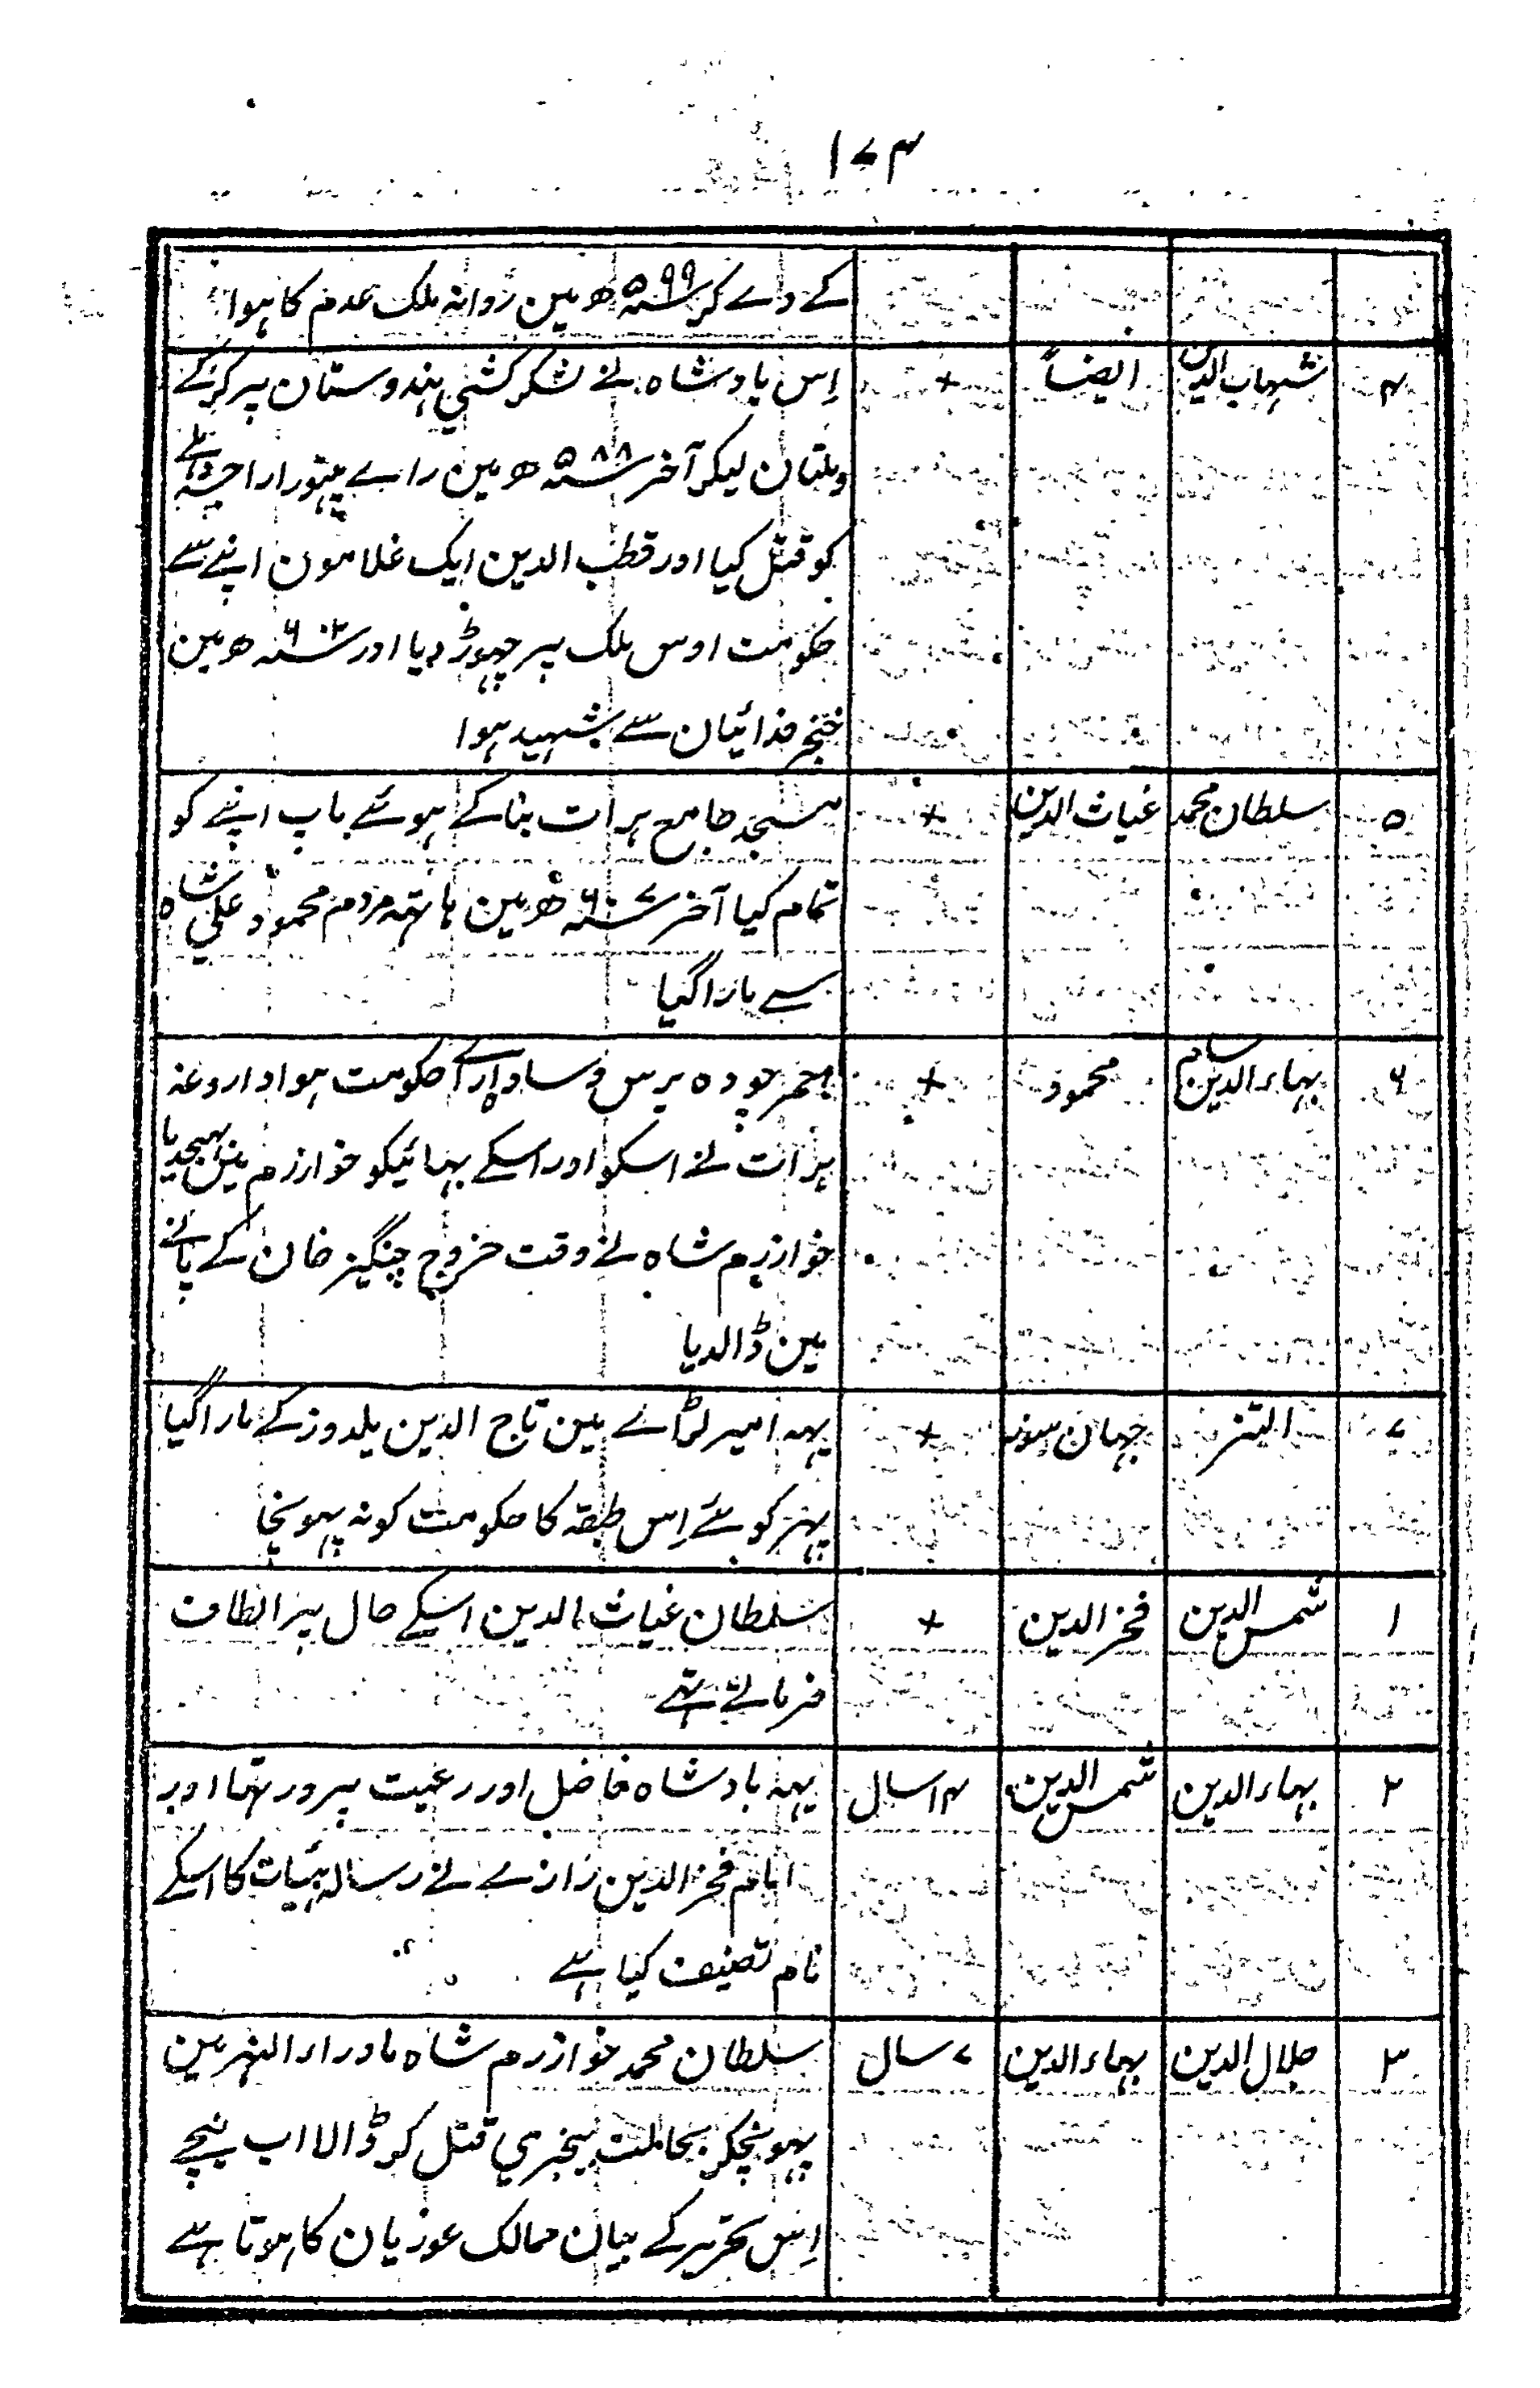 ۱۷۴
کے دے کر ۵۹۹ ھ مین روانہ ملک عدم کا ہوا
۴ شہاب الدین ایضاً + اِس پادشاہ نے لشکر کشی ہندوستان پر کر کے
ملتان لیکر آخر ۵۸۸ ھ مین راے پتھورا راجہ دہلی
کو قتل کیا اور قطب الدین ایک غلامون اپنے سے
حکومت اوس ملک پر چھوڑ دیا اور ۶۰۲ ھ مین
خنجر فدائیان سے شہید ہوا
۵ سلطان محمد غیاث الدین + مسجد جامع ہرات بنا کے ہوئے باپ اپنے کو
تمام کیا آخر ۶۰۷ ھ مین ہاتھ مردم محمود علی شاہ
سے مارا گیا
۶ بہاء الدین سام محمود + بعمر چودہ برس حکومت ہوا داروغہ
ہرات نے اسکو اور اسکے بہائیکو خوارزم مین بہیجدیا
خوارزم شاہ نے وقت خروج چنگیز خان کے پانے
مین ڈالدیا
۷ اتسز جہان سوز + یہہ امیر لڑاے مین تاج الدین یلدوز کے مارا گیا
پہر کوئے اِس طبقہ کا حکومت کو نہ پہونچا
۱ شمس الدین فخر الدین + سلطان غیاث الدین اسکے حال پر الطاف
فرماتے تہے
۲ بہاء الدین شمس الدین ۱۴ سال یہہ بادشاہ فاضل اور رعیت پرور تہا اور
امام فخر الدین رازے نے رسالہ ہیئات کا اسکے
نام تصنیف کیا ہے
۳ جلال الدین بہاء الدین ۷ سال سلطان محمد خوارزم شاہ ماوراء النہر مین
پہونچکر بحالت بیخبری قتل کر ڈالا اب نیچے
اِس تحریر کے بیان ممالک غوریان کا ہوتا ہے